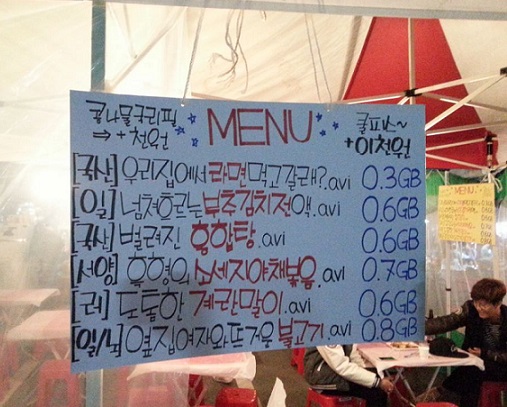 콩나물무리필
⇒ +천원
MENU
쿨피스~
+이천원
[국산] 우리집에서 라면먹고갈래?.avi 0.3GB
[일] 넘쳐흐르는부추김치전액.avi 0.6GB
[국산] 벌려진 홍합탕.avi 0.6GB
[서양] 흑형의 소세지야채볶음.avi 0.7GB
도톰한 계란말이.avi 0.6GB
[일/노] 옆집여자와뜨거운불고기.avi 0.8GB
MENU